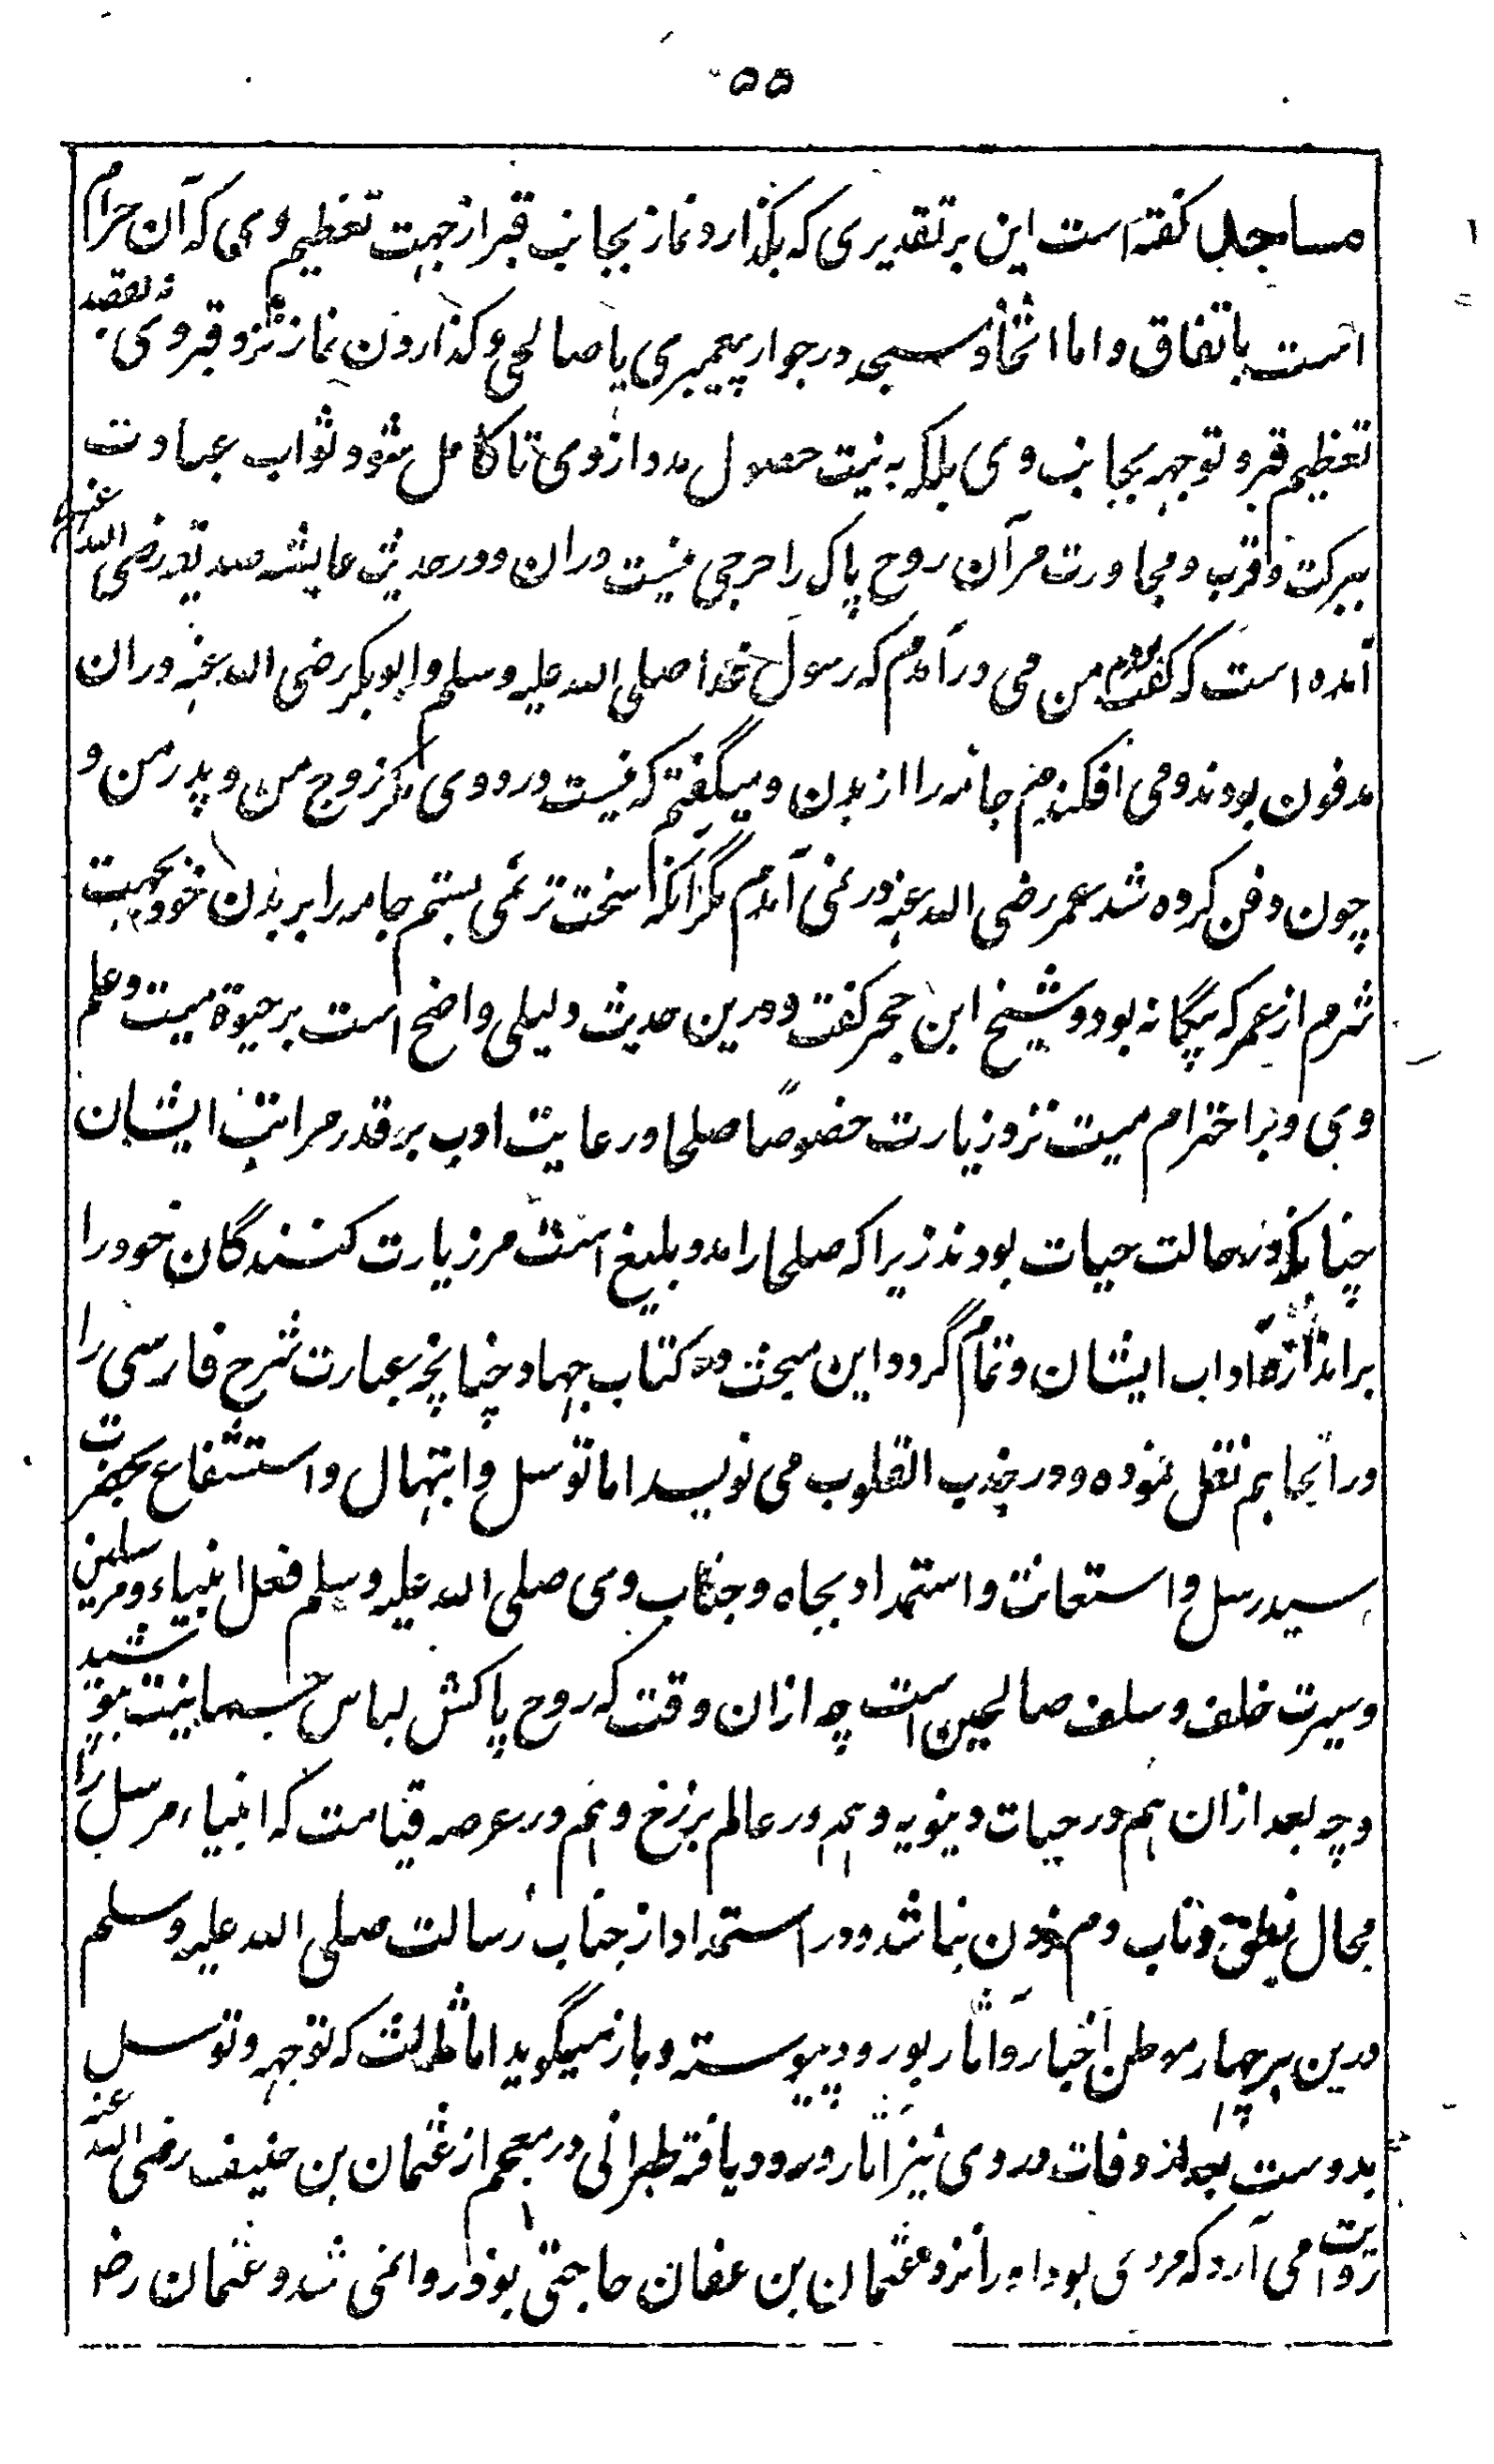 ۵۵
مساجد گفته است این بر تقدیری که بگذارد نماز بجانب قبر از جهت تعظیم وی که آن حرام
است باتفاق و اما اتخاذ مسجد در جوار پیغمبری یا صالحی و گذاردن نماز نزد قبر وی نه بقصد
تعظیم قبر و توجه بجانب وی بلکه به نیت حصول مدد از وی تا کامل شود ثواب عبادت
ببرکت قرب و مجاورت مر آن روح پاک را حرجی نیست دران و در حدیث عایشه صدیقه رضی الله عنها
آمده است که گفت من می در آمدم که رسول خدا صلی الله علیه وسلم و ابوبکر رضی الله عنه دران
مدفون بودند و می افکندم جامه را از بدن و میگفتم که نیست در وی مگر زوج من و پدر من و
چون دفن کرده شد عمر رضی الله عنه در نمی آمدم مگر آنکه سخت تر می بستم جامه را بر بدن خود بجهت
شرم از عمر که بیگانه بود و شیخ ابن حجر گفت و درین حدیث دلیلی واضح است بر حیوة میت و علم
وی و بر احترام میت نزد زیارت خصوصًا صلحا و رعایت ادب بر قدر مراتب ایشان
چنانکه در حالت حیات بودند زیرا که صلحا را مدد بلیغ است مر زیارت کنندگان خود را
بر اندازه اداب ایشان و تمام گردد این مبحث در کتاب جهاد چنانچه بعبارت شرح فارسی را
در اینجا هم نقل نموده و در جذب القلوب می نویسد اما توسل و ابتهال و استشفاع بحضرت
سید رسل و استعانت و استمداد بجاه و جناب وی صلی الله علیه وسلم فعل انبیاء و مرسلین
و سیرت خلف و سلف صالحین است چه ازان وقت که روح پاکش لباس جسمانیت پوشید
و چه بعد ازان هم در حیات دینویه و هم در عالم برزخ و هم در عرصه قیامت که انبیاء مرسل را
مجال نطق و تاب دم زدن نباشد و در استمداد از جناب رسالت صلی الله علیه وسلم
درین هر چهار موطن اخبار و آثار بورود پیوسته و باز میگوید اما ثالث که توجه و توسل
بدوست بعد از وفات در وی نیز آثار ورود یافته طبرانی در معجم از عثمان بن حنیف رضی الله عنه
روایت می آرد که مردی بود او را نزد عثمان بن عفان حاجتی بود روا نمی شد و عثمان رض